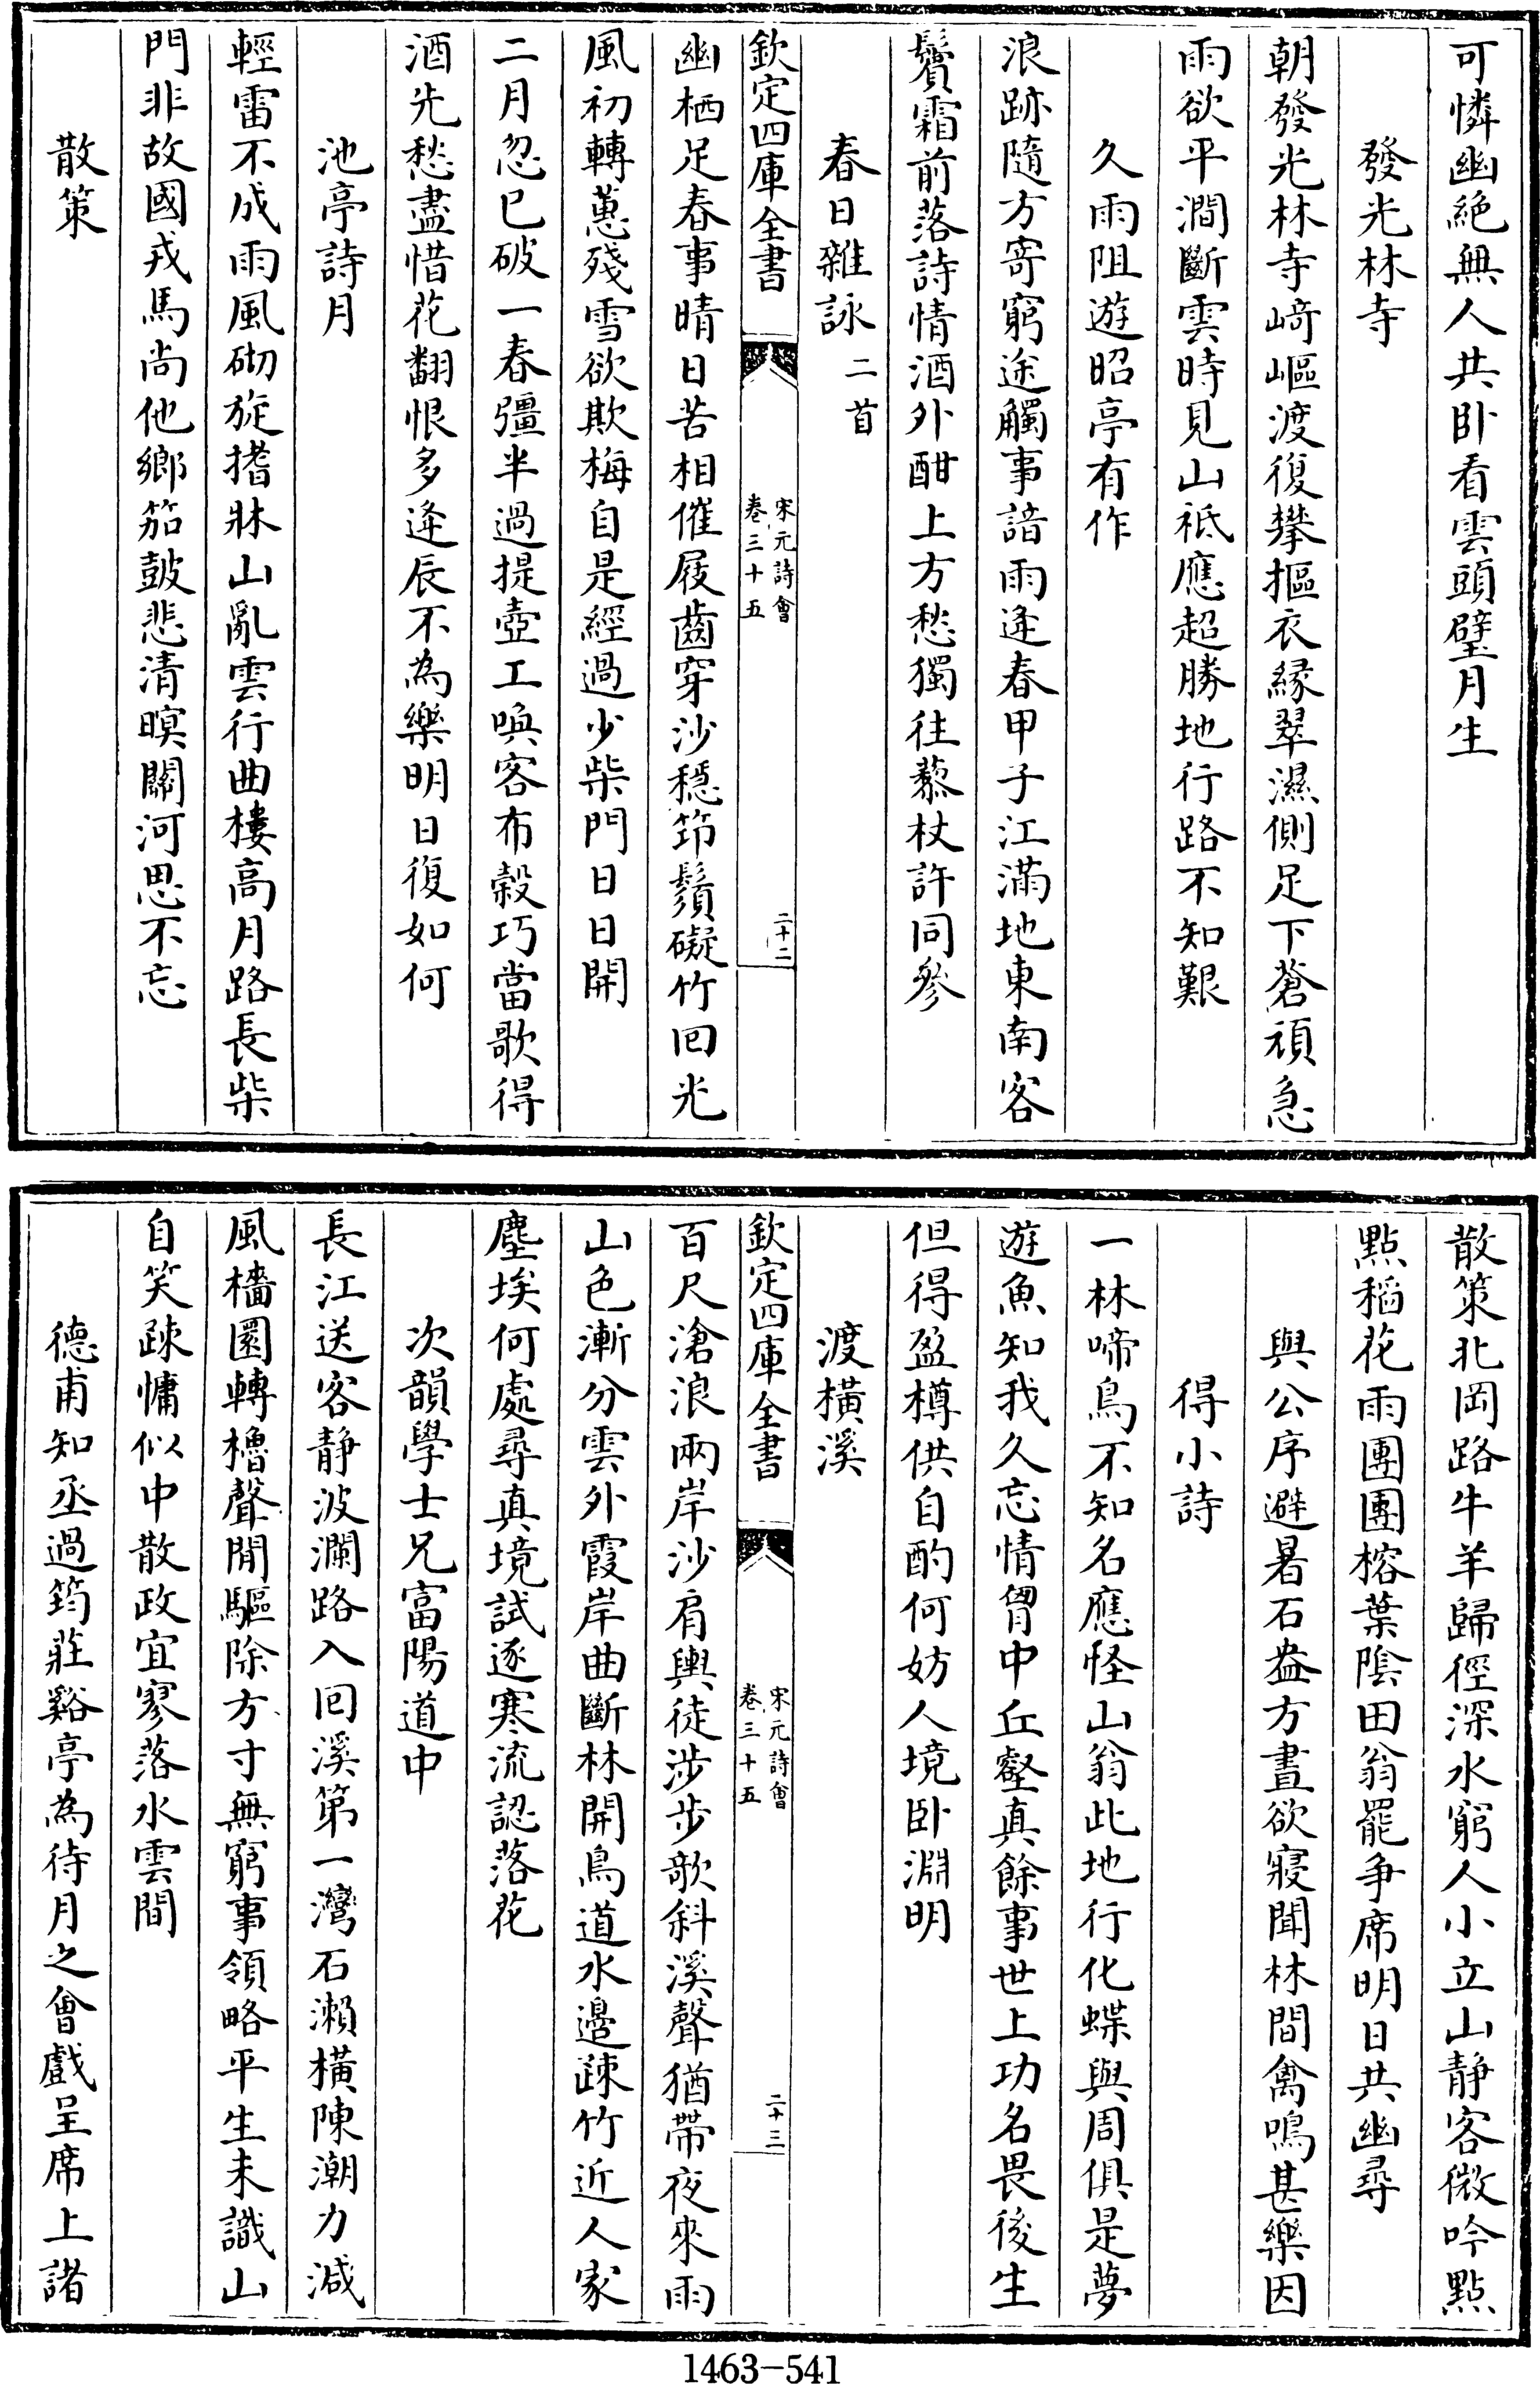 可憐幽絶無人共卧看雲頭璧月生
發光林寺
朝發光林寺﨑嶇渡復攀摳衣緣翠濕側足下蒼頑急
雨欲平澗斷雲時見山祗應超勝地行路不知艱
久雨阻遊昭亭有作
浪跡隨方寄窮途觸事諳雨逄春甲子江滿地東南客
鬢霜前落詩情酒外酣上方愁獨往藜杖許同參
春日雜詠二首
欽定四庫全書
宋元詩會
卷三十五
二十二
幽栖足春事晴日苦相催屐齒穿沙穏筇鬚礙竹回光
風初轉蕙殘雪欲欺梅自是經過少柴門日日開
二月忽已破一春彊半過提壺工喚客布榖巧當歌得
酒先愁盡惜花翻恨多逄辰不為樂明日復如何
池亭詩月
輕雷不成雨風砌旋搘牀山亂雲行曲樓高月路長柴
門非故國戎馬尚他鄉笳鼓悲清暝關河思不忘
散策
散策北岡路牛羊歸徑深水窮人小立山静客微吟點
點稻花雨團團榕葉陰田翁罷争席明日共幽尋
與公序避暑石盎方晝欲寢聞林間禽鳴甚樂因
得小詩
一林啼鳥不知名應怪山翁此地行化蝶與周俱是夢
遊魚知我久忘情胷中丘壑真餘事世上功名畏後生
但得盈樽供自酌何妨人境卧淵明
渡横溪
欽定四庫全書
宋元詩會
卷三十五
二十三
百尺滄浪兩岸沙肩輿徒涉步欹斜溪聲猶帶夜來雨
山色漸分雲外霞岸曲斷林開鳥道水邉疎竹近人家
塵埃何處尋真境試逐寒流認落花
次韻學士兄富陽道中
長江送客静波瀾路入回溪第一灣石瀨横陳潮力減
風檣圜轉櫓聲閒驅除方寸無窮事領略平生未識山
自笑疎慵似中散政宜寥落水雲間
德甫知丞過筠莊谿亭為待月之會戲呈席上諸
1463-541